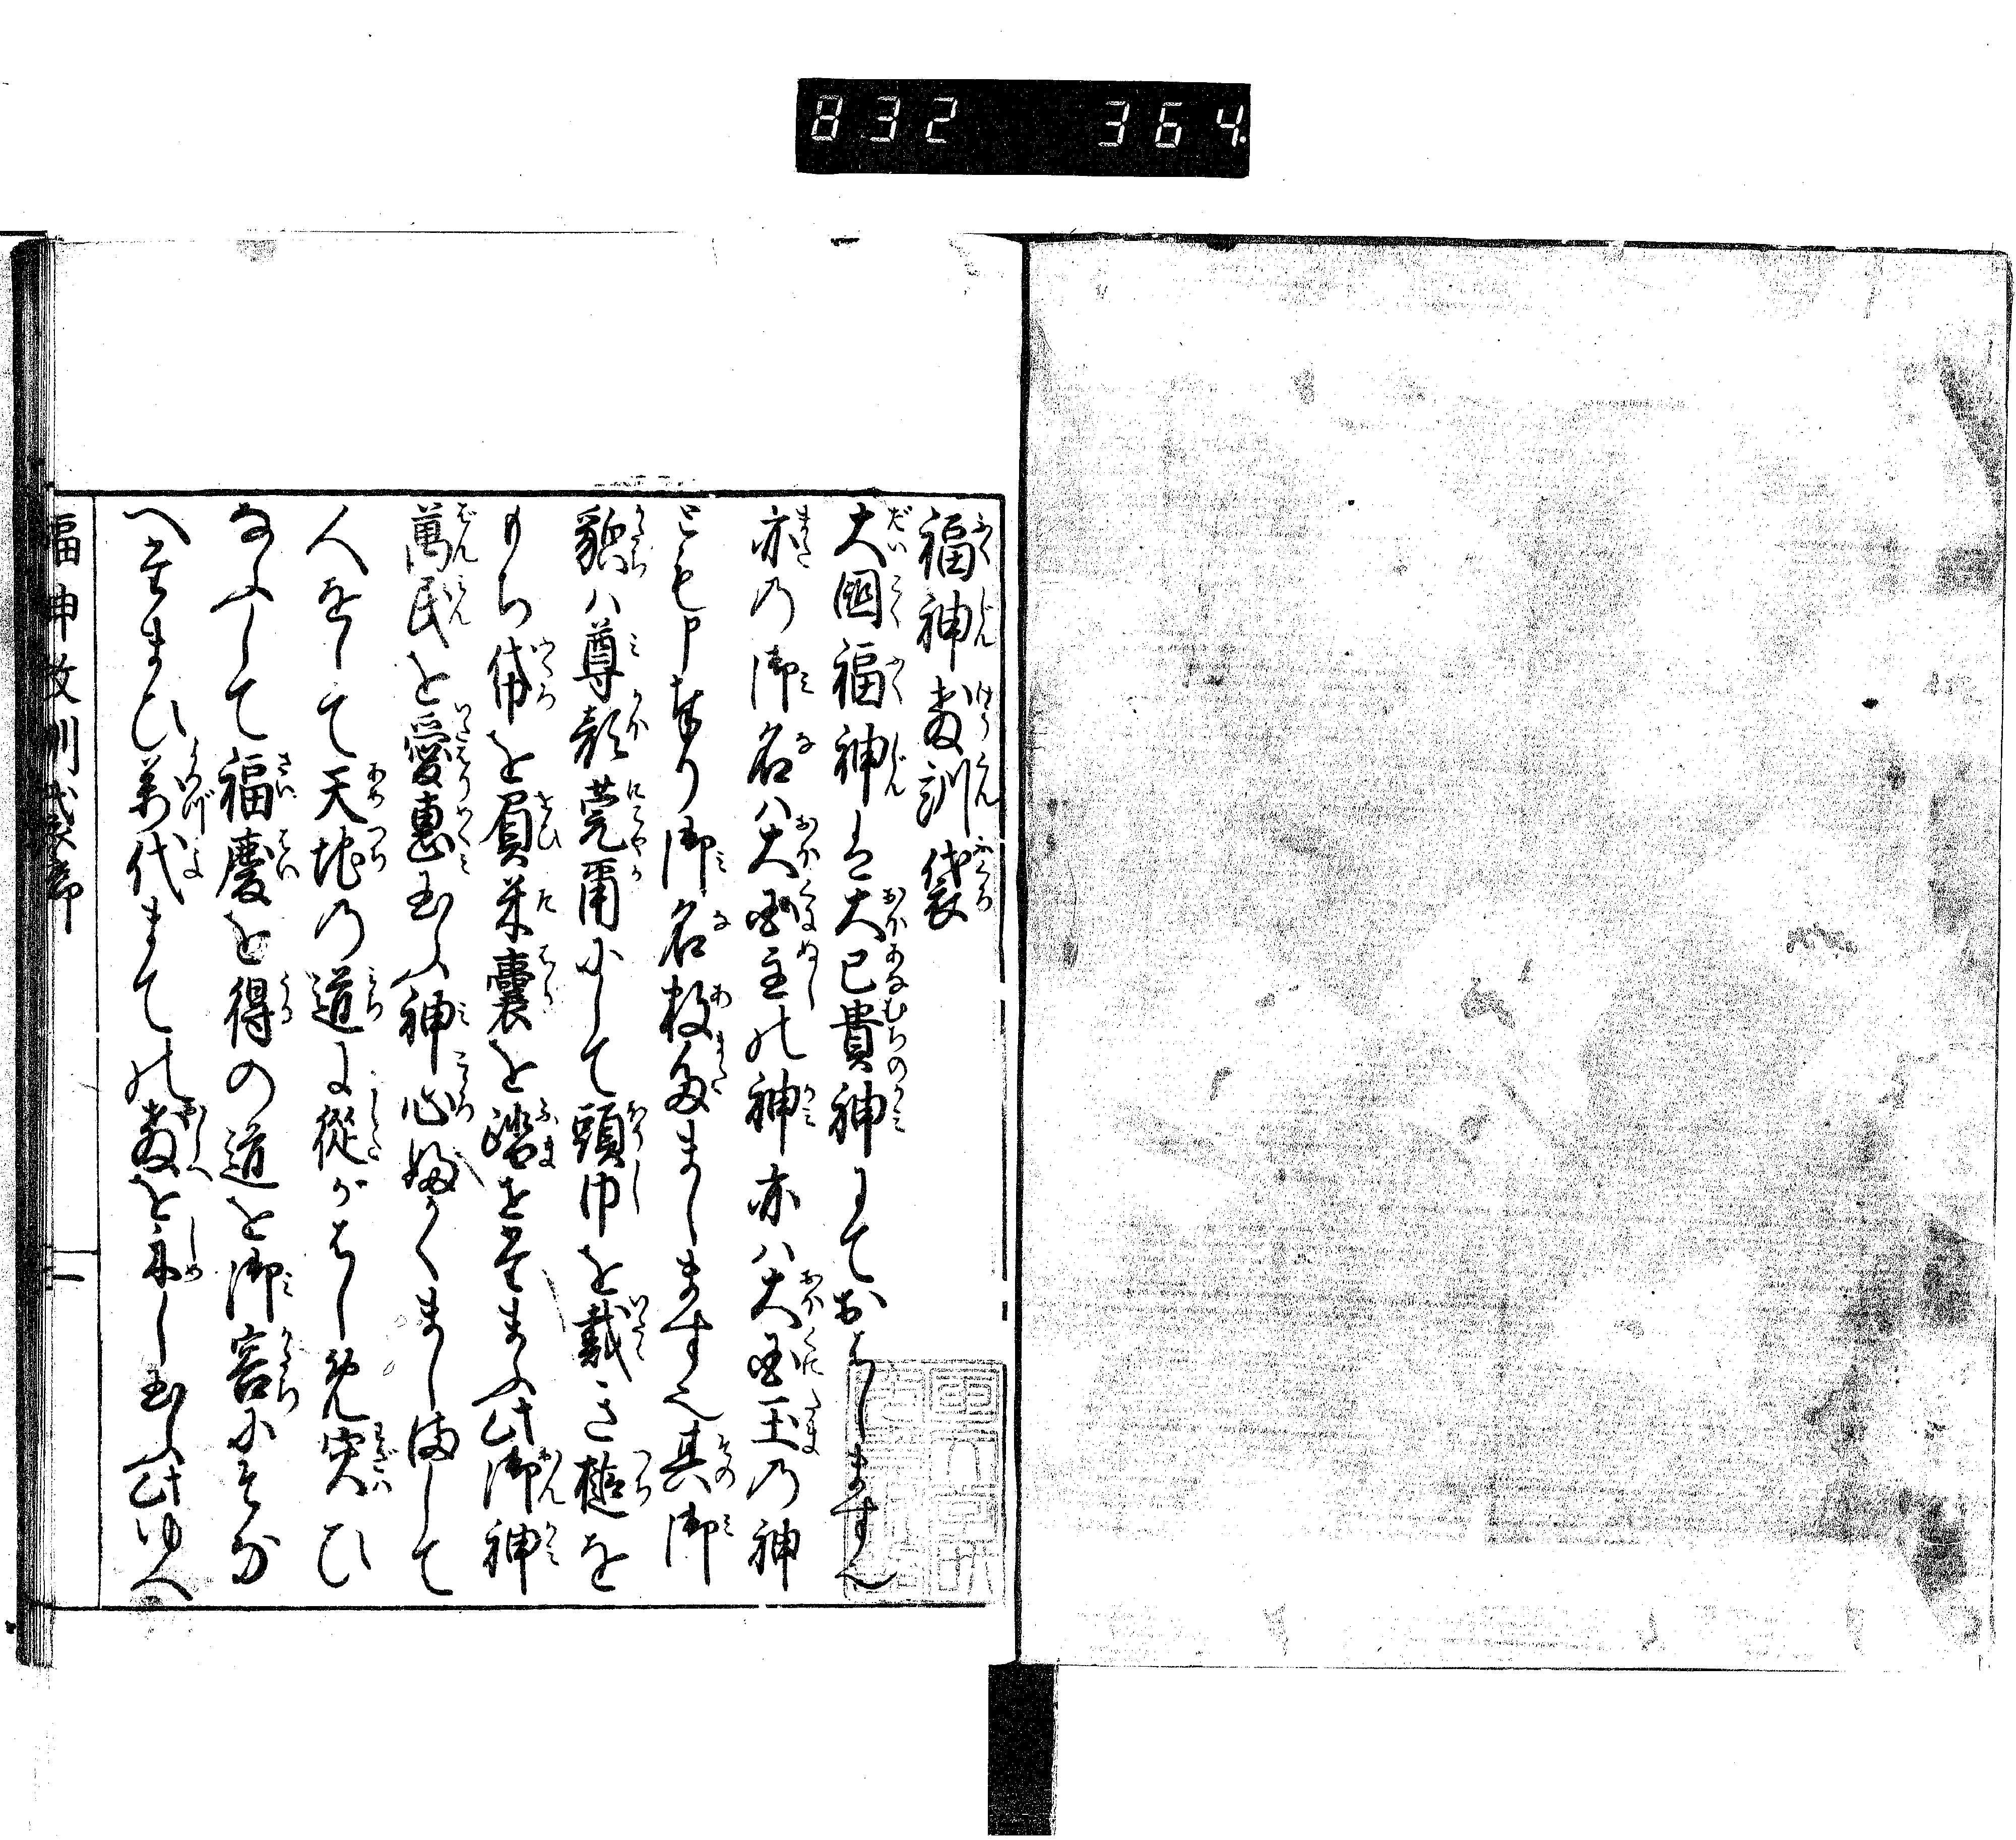 832 364
福神教訓袋
大國福神と申は大己貴神にておはしますなり
亦の御名ハ大国主の神亦ハ大国玉の神
とも申奉り御名数多まします也其御
貌ハ尊顔莞爾にして頭巾を戴き槌を
もち袋を屓米囊を踏をたまふ此御神
萬民を愛惠玉ふ神心ふかくまし満して
人をして天地の道に從がはしめ災ひ
なふして福慶を得の道を御容にそな
へたまひ萬代まての教を示し玉ふ此ゆへ
福神教訓袋
一